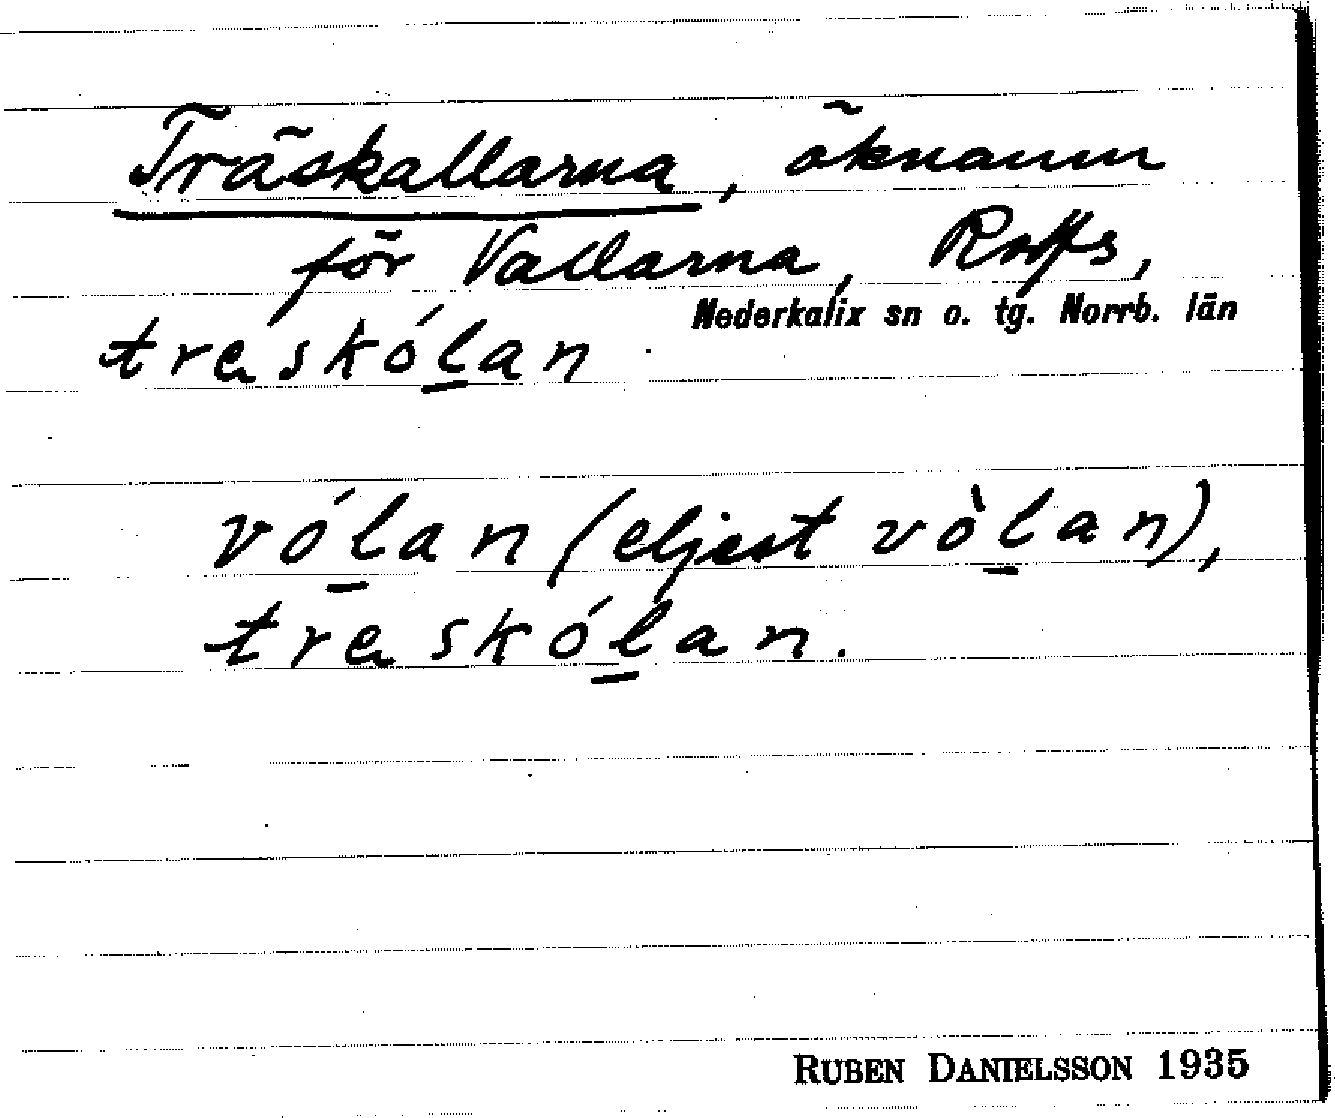 Träskallarna, öknamn
för Vallarna, Rolfs,
Nederkalix sn o. tg. Norrb. län
traskólan
vólan (eljest vòlan),
traskólan.
RUBEN DANIELSSON 1935